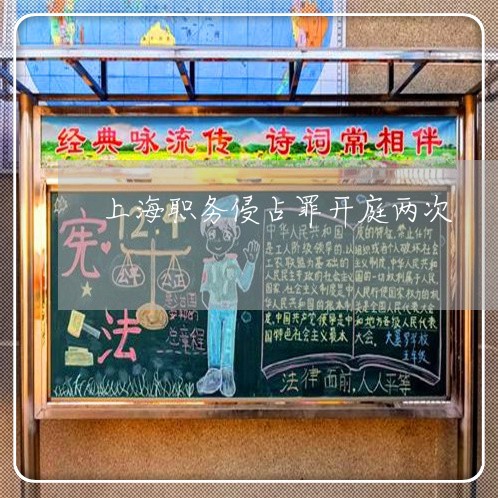 经典咏流传 诗词常相伴
上海职务侵占罪开庭两次
12.4
宪
法
公平
公正
中华人民共和国
是工人阶级领导的,以
工农联盟为基础的
人民民主专政的社会主义
国家,社会主义制度是中
华人民共和国的根本制
度,中国共产党领导是中
国特色社会主义最本
质的特征,禁止任何
组织或者个人破坏社会
主义制度,中华人民共和
国的一切权利属于人民,
人民行使国家权力的机
关是全国人民代表大会
和地方各级人民代表
大会。
五年级
法律面前,人人平等